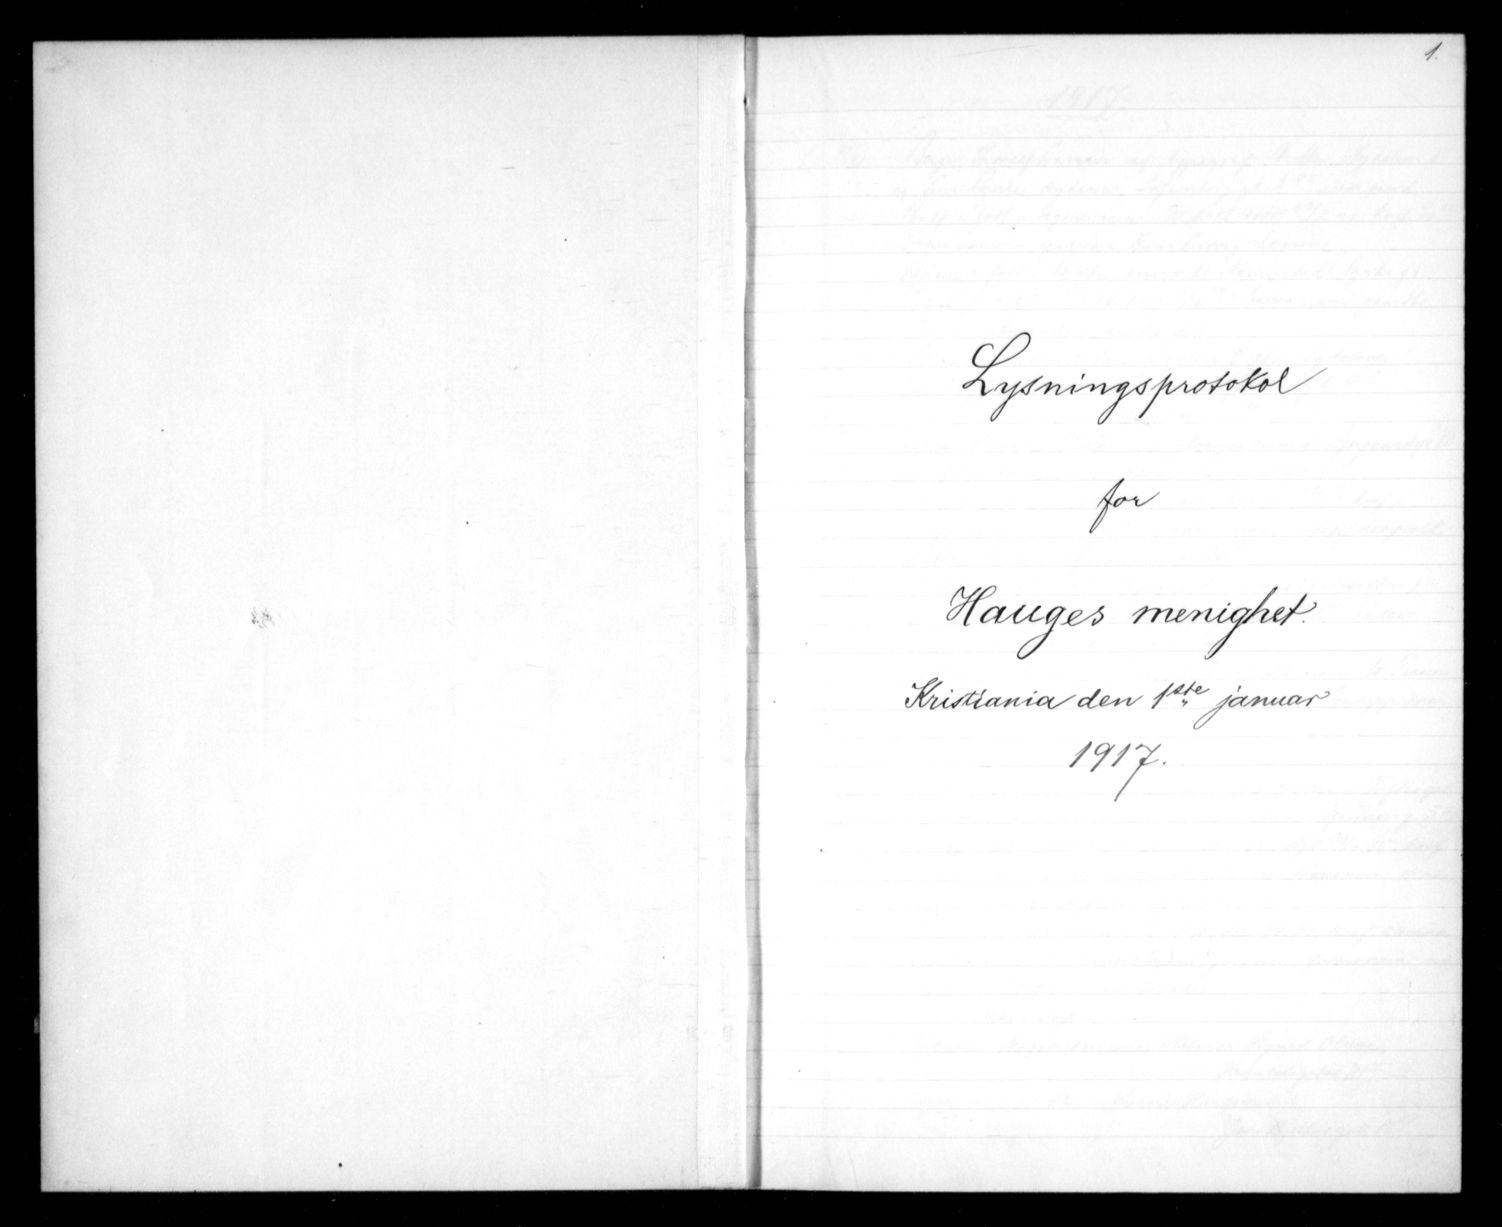 1.
Lysningsprotokol
for
Hauges menighet.
Kristiania den 1ste januar
1917.